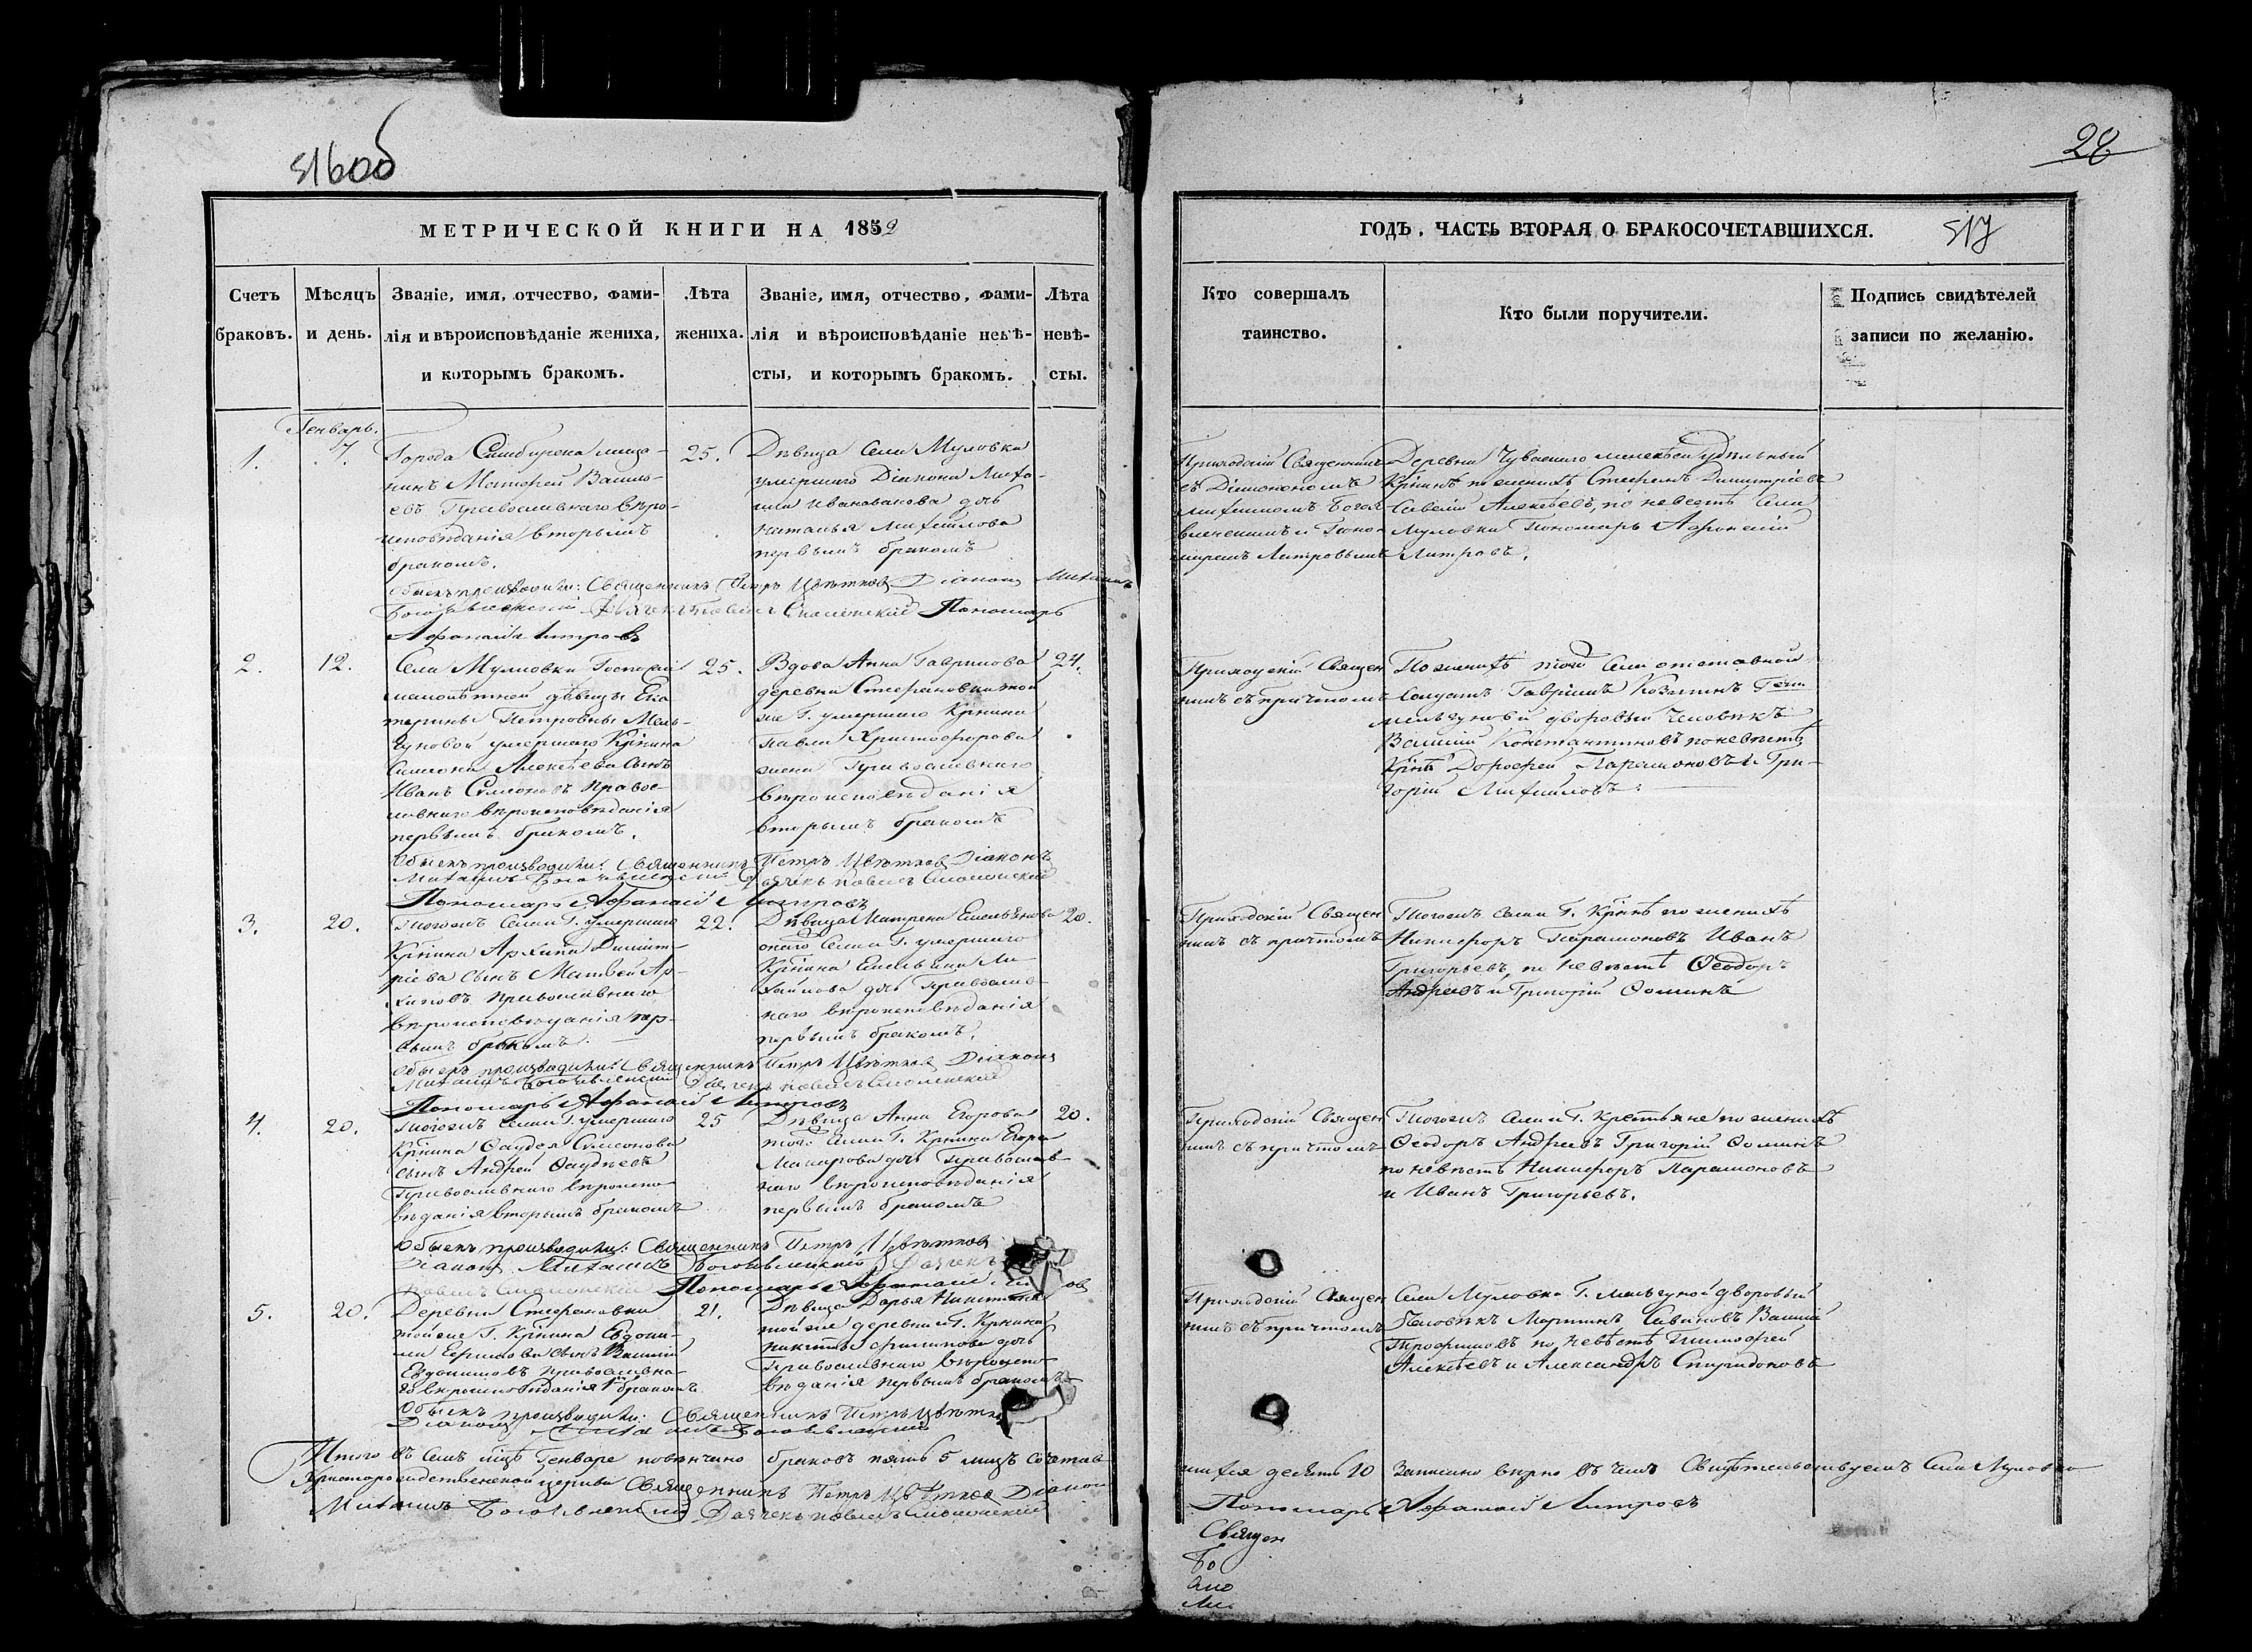 516об
28
МЕТРИЧЕСКОЙ КНИГИ НА 1852
ГОДЪ, ЧАСТЬ ВТОРАЯ О БРАКОСОЧЕТАВШИХСЯ.
517
Счетъ
браковъ.
Мѣсяцъ
и день.
Званіе, имя, отчество, фами-
лія и вѣроисповѣданіе жениха,
и которымъ бракомъ.
Лѣта
жениха.
Званіе, имя, отчество, фами-
лія и вѣроисповѣданіе невѣ-
сты, и которымъ бракомъ.
Лѣта
невѣ-
сты.
Кто совершалъ
таинство.
Кто были поручители.
Подпись свидѣтелей
записи по желанію.
Генварь.
1.
7.
Города Симбирска меща-
нинъ Матфей Василь-
евъ Православнаго вѣро-
исповѣданія вторымъ
бракомъ.
25.
Дѣвица Села Муловки
умершаго Діакона Миха-
ила Иванова дочь
Наталья Михайлова
первымъ бракомъ
Приходскій Священникъ
съ Діакономъ
Михаиломъ Богоя
вленскимъ и Поно
маремъ Митровымъ
Деревни удѣльный
Крѣнинъ по женихѣ Стефанъ Димитріевъ
Савелій Алексѣевъ, по невестѣ Села
Муловки Пономарь Афанасій
Митровъ.
Обыскъ производили: Священникъ Петръ Цвѣтковъ Діаконъ Михаилъ
Богоявленскій Дьячекъ Павелъ Смоленскій Пономарь
Афанасій Митровъ
2.
12.
Села Муловки Госпожи
малолѣтней дѣвицы Ека
терины Петровны Мель-
гуновой умершаго Крѣнина
Симеона Алексѣева сынъ
Иванъ Симеоновъ Правос-
лавнаго вѣроисповѣданія
первымъ бракомъ.
25.
Вдова Анна Гаврилова
деревни Стефановки той
же Г. умершаго Крѣнина
Павла Христофорова
жена Православнаго
вѣроисповѣданія
вторымъ бракомъ
24.
Приходскій Священ
никъ съ причтомъ
По женихѣ той Села отставной
Солдатъ Гавріилъ Козминъ Гжи
Мельгуновой дворовый человѣкъ
Василій Константиновъ по невѣстѣ
Крѣнѣ Дорофей Парамоновъ и Гри-
горій Михайловъ.
Обыскъ производили: Священникъ Петръ Цвѣтковъ Діаконъ
Михаилъ Богоявленскій Дьячекъ Павелъ Смоленскій
Пономарь Афанасій Митровъ
3.
20.
Тогожъ Села Г. умершаго
Крѣнина Архипа Димит-
ріева сынъ Матвей Ар-
хиповъ Православнаго
вѣроисповѣданія пер-
вымъ бракомъ.
22.
Дѣвица Матрена Емельянова
онаго Села Г. умершаго
Крѣнина Емельяна Ми-
хайлова дочь Православ-
наго вѣроисповѣданія
первымъ бракомъ.
20.
Приходскій Священ
никъ съ причтомъ
Тогожъ села Г. Крѣнѣ по женихѣ
Никифоръ Парамоновъ Иванъ
Григорьевъ, по невѣстѣ Ѳеодоръ
Андреевъ и Григорій Ѳоминъ
Обыскъ производили: Священникъ Петръ Цвѣтковъ Діаконъ
Михаилъ Богоявленскій Дьячекъ Павелъ Смоленскій
Пономарь Афанасій Митровъ
4.
20.
Тогожъ Села Г. умершаго
Крѣнина Ѳаддея Симеонова
сынъ Андрей Ѳаддеевъ
Православнаго вѣроиспо-
вѣданія вторымъ бракомъ
25
Дѣвица Анна Егорова
тогоже Села Г. Крѣнина Егора
Макарова дочь Православ-
наго вѣроисповѣданія
первымъ бракомъ
20.
Приходскій Священ
никъ съ причтомъ
Тогожъ Села Г. Крестьяне по женихѣ
Ѳеодоръ Андреевъ Григорій Ѳоминъ
по невѣстѣ Никифоръ Парамоновъ
и Иванъ Григорьевъ.
Обыскъ производили: Священникъ Петръ Цвѣтковъ
Діаконъ Михаилъ Богоявленскій Дьячекъ
Павелъ Смоленскій Пономарь Афанасій
5.
20.
Деревни Стефановки
той же Г. Крѣнина Евдоки-
ма сынъ Василій
Евдокимовъ Православна-
го вѣроисповѣданія бракомъ
21.
Дѣвица Дарья Никитина
той же деревни и Г. Крѣнина
Никиты Филипова дочь
Православнаго вѣроиспо-
вѣданія первымъ бракомъ
Приходскій Священ
никъ съ причтомъ
Села Муловки Г. Мельгуной дворовый
Человѣкъ Мартинъ Савиновъ Василій
Трофимовъ по невѣстѣ Тимофей
Алексѣевъ и Александръ Спиридоновъ
Обыскъ производили: Священникъ Петръ Цвѣтко
Діаконъ Михаилъ Богоявленскій
Итого въ семъ мцѣ Генваре повѣнчано браковъ пять 5 лицъ сочетав
шихся десять 10 Записано вѣрно въ чемъ Свидѣтельствуемъ Села Муловки
Христорождественской церкви Священникъ Петръ Цвѣтковъ Діаконъ
Михаилъ Богоявленскій Дьячекъ Павелъ Смоленскій
Пономарь Афанасій Митровъ
Священ
Бо